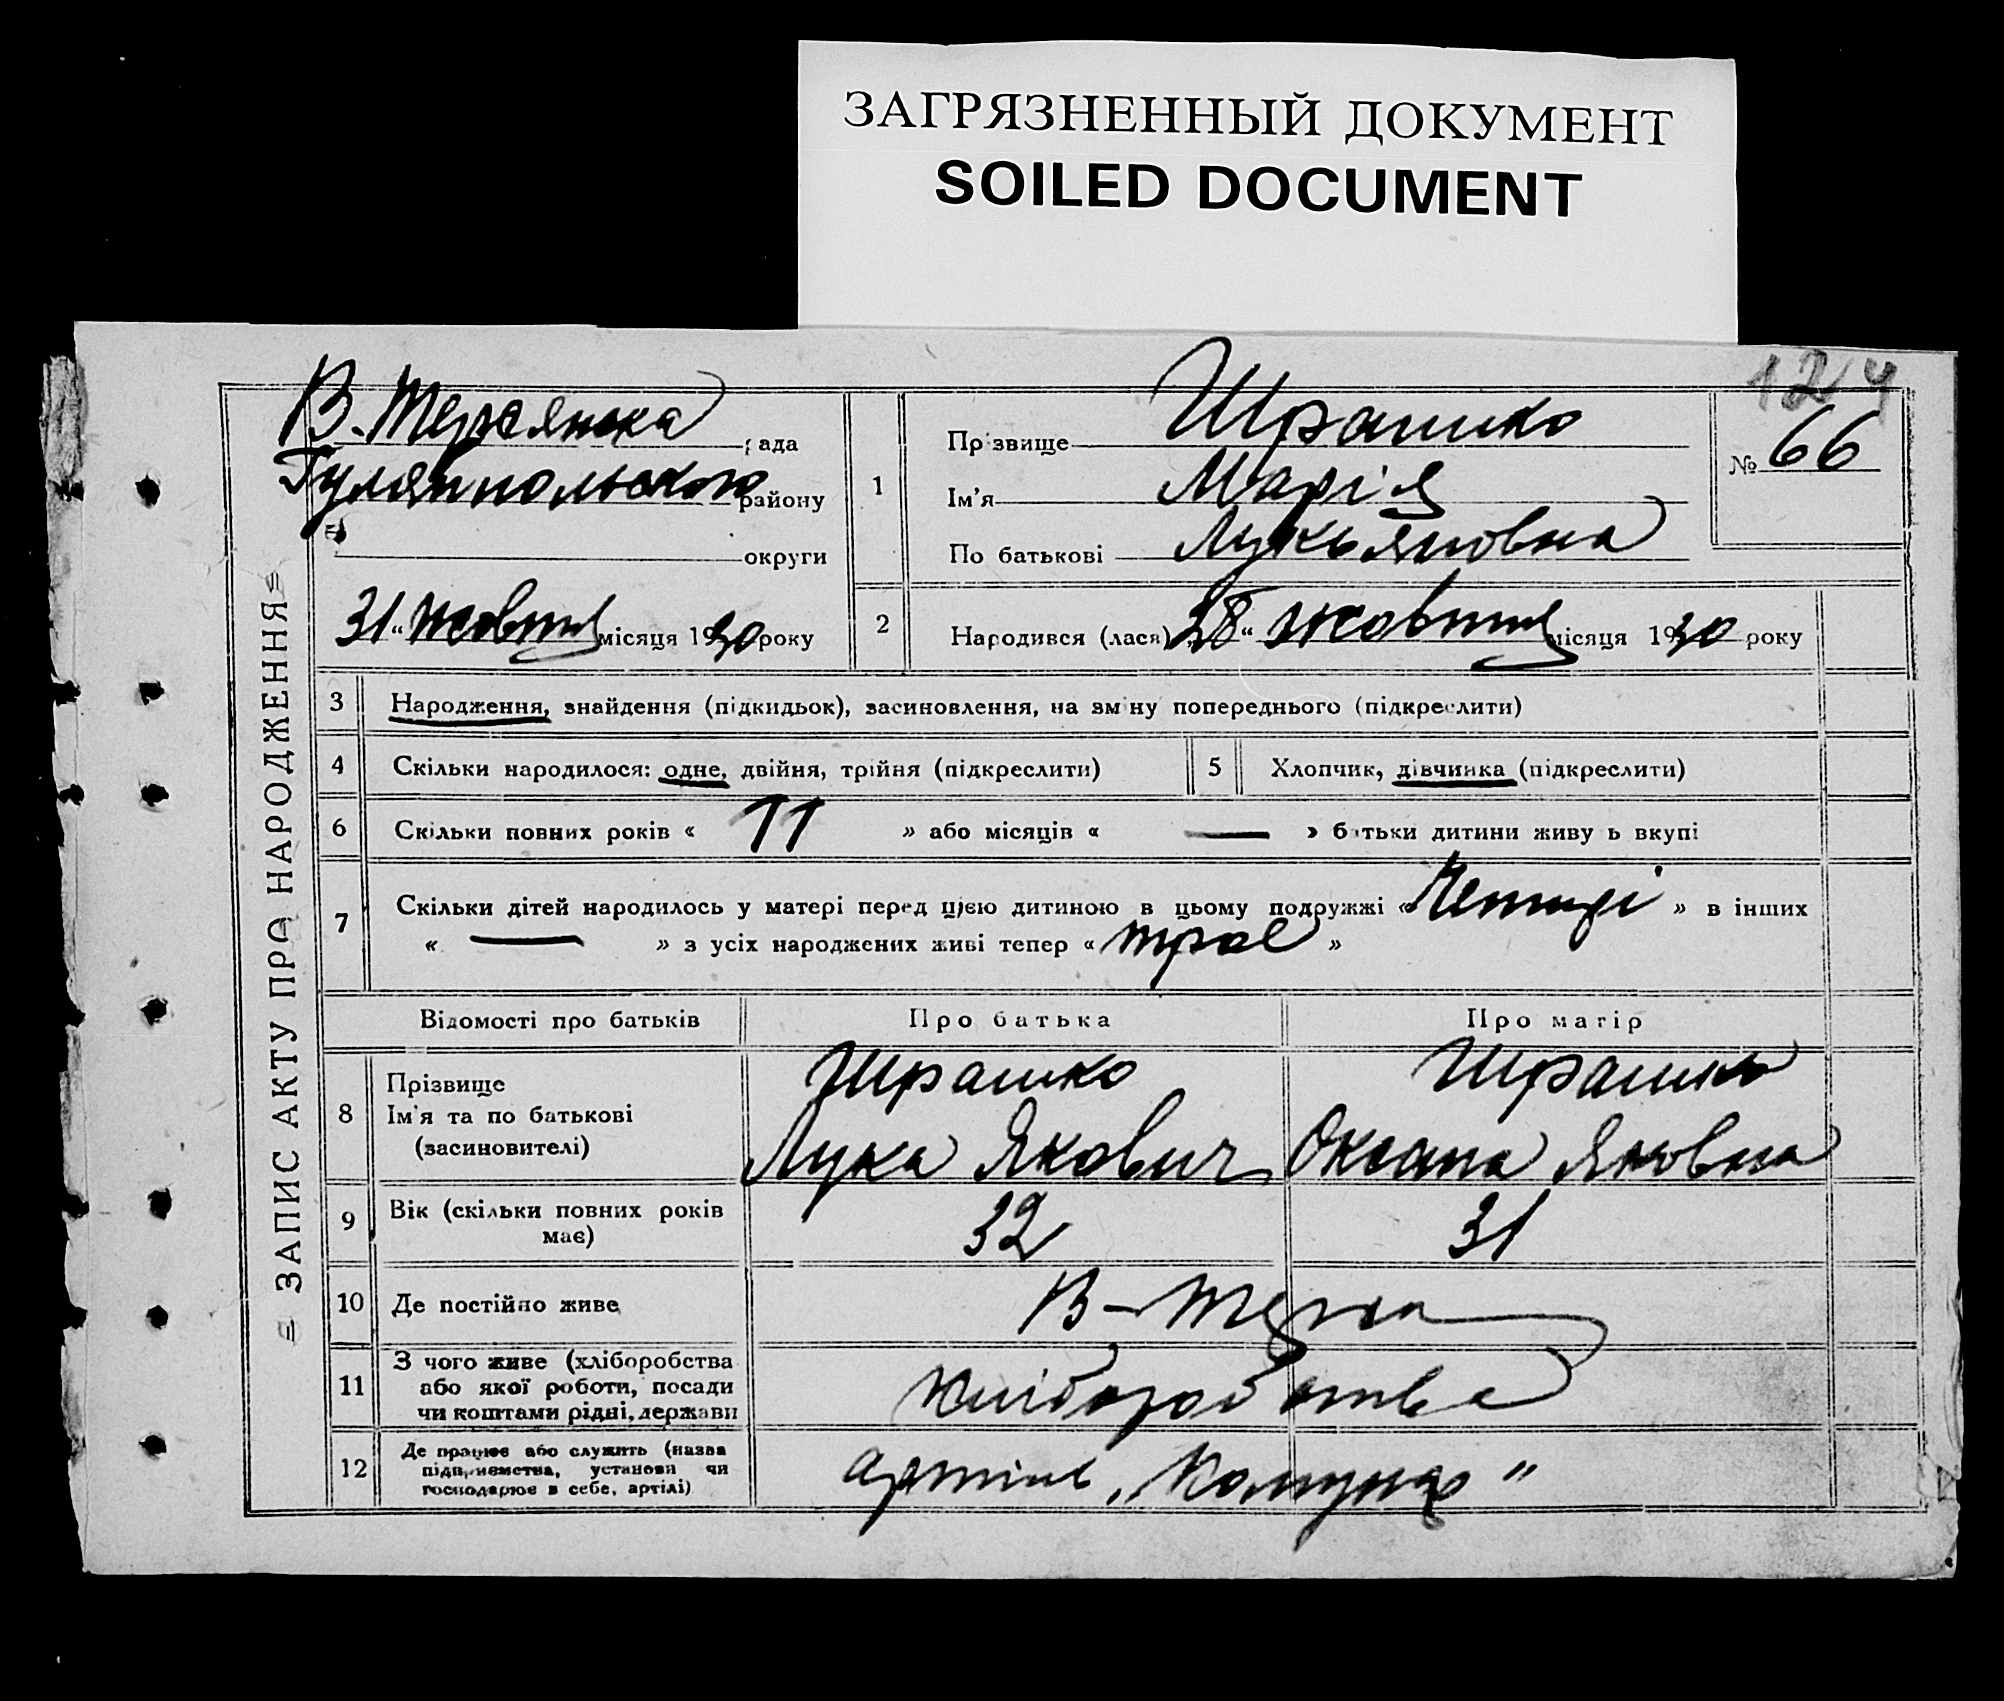 ЗАГРЯЗНЕННЫЙ ДОКУМЕНТ
SOILED DOCUMENT
124
= ЗАПИС АКТУ ПРО НАРОДЖЕННЯ =
В. Терсянска рада
Гуляйпольского району
округи
31 " жовтня місяця 1930 року
1
Прізвище Шрамко
Ім'я Марія
По батькові Лукьяновна
№ 66
2 Народився (лася) 28 " жовтня місяця 1930 року
3 Народження, знайдення (підкидьок), засиновлення, на зміну попереднього (підкреслити)
4 Скільки народилося: одне, двійня, трійня (підкреслити)
5 Хлопчик, дівчинка (підкреслити)
6 Скільки повних років « 11 » або місяців « — » батьки дитини живуть вкупі
7 Скільки дітей народилось у матері перед цією дитиною в цьому подружжі « Четирі » в інших
« — » з усіх народжених живі тепер « трое »
Відомості про батьків Про батька Про матір
8 Прізвище
Ім'я та по батькові
(засиновителі)
Шрамко
Лука Якович
Шрамко
Оксана Яковна
9 Вік (скільки повних років
має)
32
31
10 Де постійно живе
В-Терса
11 З чого живе (хліборобства
або якої роботи, посади
чи коштами рідні, держави
хліборобства
12 Де працює або служить (назва
підприємства, установи чи
господарює в себе, артілі)
артіль „Комунар"